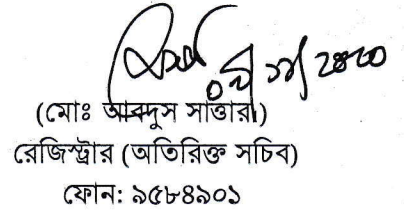 (মোঃ আবদুস সাত্তার)
রেজিস্ট্রার (অতিরিক্ত সচিব)
ফোন: ৯৫৮৪৯০১